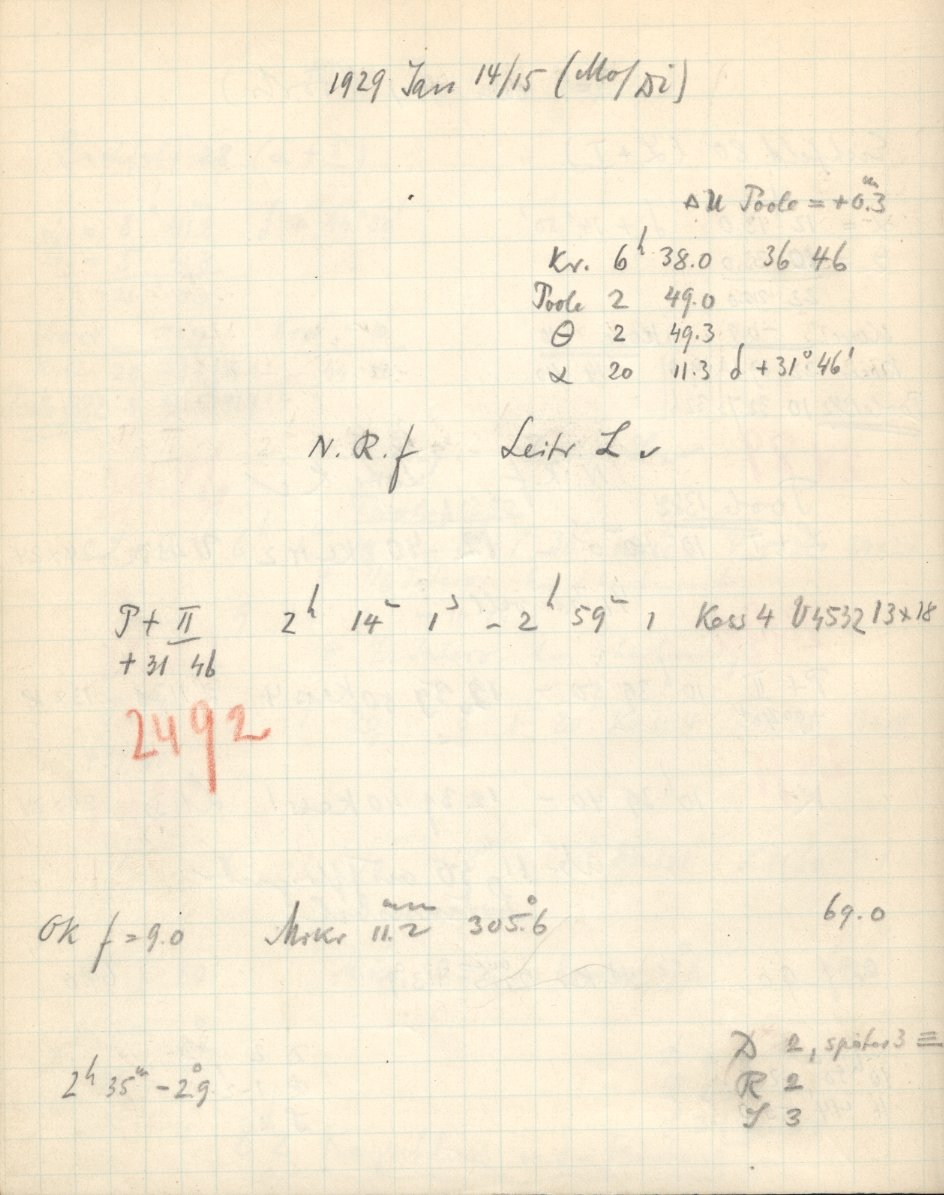 1929 Jan 14/15 (Mo/Di)
ΔU Poole = +0.3ᵐ
Kr. 6ʰ 38.0 36 46
Poole 2 49.0
Θ 2 49.3
α 20 11.3 δ +31° 46'
N. R. f Leitr. L v
P + II 2ʰ 14ᵐ 1ˢ - 2ʰ 59ᵐ 1 Kass 4 U4532 13x18
+31 46
2492
Ok f = 9.0 Mikr 11.2 ᵐᵐ 305.°6 69.0
D 2, später 3 ≡
2ʰ 35ᵐ - 2.°9 R 2
S 3